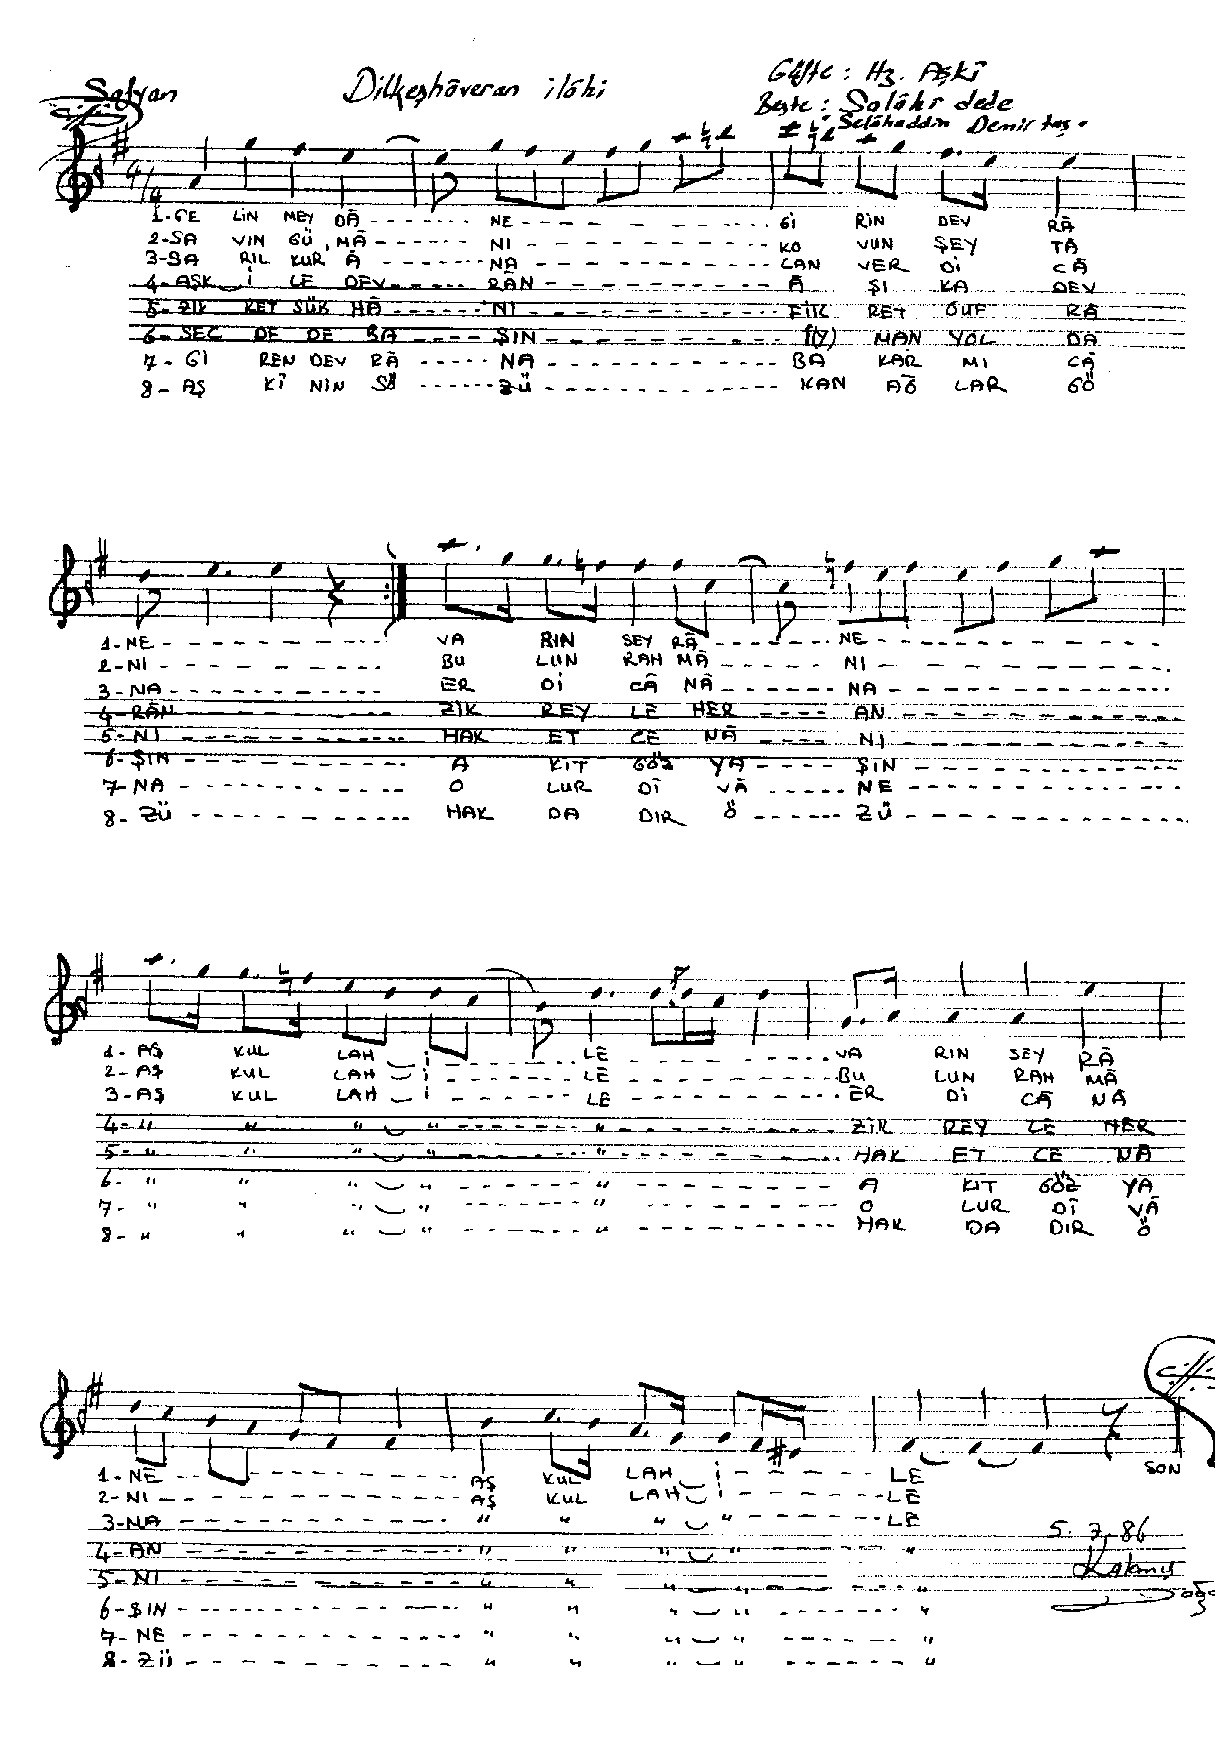 Sofyan Dilkeşhâveran ilâhi Güfte : Hz. Aşkî
Beste : Salâhi dede
Selâhaddin Demirtaş
4/4
1-GE LİN MEY DÂ ------- NE ---------- Gİ RİN DEV RÂ
2-SA VIN GÜ MÂ ------ Nİ ---------- KO VUN ŞEY TÂ
3-SA RIL KUR Â ------- NA ---------- CAN VER Dİ CÂ
4-AŞK İ LE DEV ------ RÂN ---------- Â ŞI KA DEV
5-ZİK RET SÜK HÂ ------ Nİ ---------- FİK RET ÖUF RÂ
6-SEC DE DE BA ----- ŞIN ---------- f(Y) MAN YOL DA
7-Gİ REN DEV RÂ ----- NA ---------- BA KAR MI CÂ
8-AŞ KÎ NİN SÖ ------ ZÜ ---------- KAN AĞ LAR GÖ
1-NE ---------- VA RIN SEY RÂ ------- NE ----------
2-Nİ ---------- BU LUN RAH MÂ ----- Nİ ----------
3-NA ---------- ER Dİ CÂ NÂ ------- NA ----------
4-RÂN ---------- ZİK REY LE HER ---- AN ----------
5-Nİ ---------- HAK ET CE NÂ ---- Nİ ----------
6-ŞIN ---------- A KIT GÖZ YA ---- ŞIN ----------
7-NA ---------- O LUR DÎ VÂ ----- NE ----------
8-ZÜ ---------- HAK DA DIR Ö ------ ZÜ ----------
1-AŞ KUL LAH İ ------ LE ---------- VA RIN SEY RÂ
2-AŞ KUL LAH İ ------ LE ---------- BU LUN RAH MÂ
3-AŞ KUL LAH İ ------ LE ---------- ER Dİ CÂ NÂ
4-" " " " ------ " ---------- ZİK REY LE HER
5-" " " " ------ " ---------- HAK ET CE NÂ
6-" " " " ------ " ---------- A KIT GÖZ YA
7-" " " " ------ " ---------- O LUR DÎ VÂ
8-" " " " ------ " ---------- HAK DA DIR Ö
SON
1-NE ---------- AŞ KUL LAH İ ------ LE
2-Nİ ---------- AŞ KUL LAH İ ------ LE
3-NA ---------- " " " " ------ LE
5.7.86
4-AN ---------- " " " " ------ "
5-Nİ ---------- " " " " ------ "
6-ŞIN ---------- " " " " ------ "
7-NE ---------- " " " " ------ "
8-ZÜ ---------- " " " " ------ "